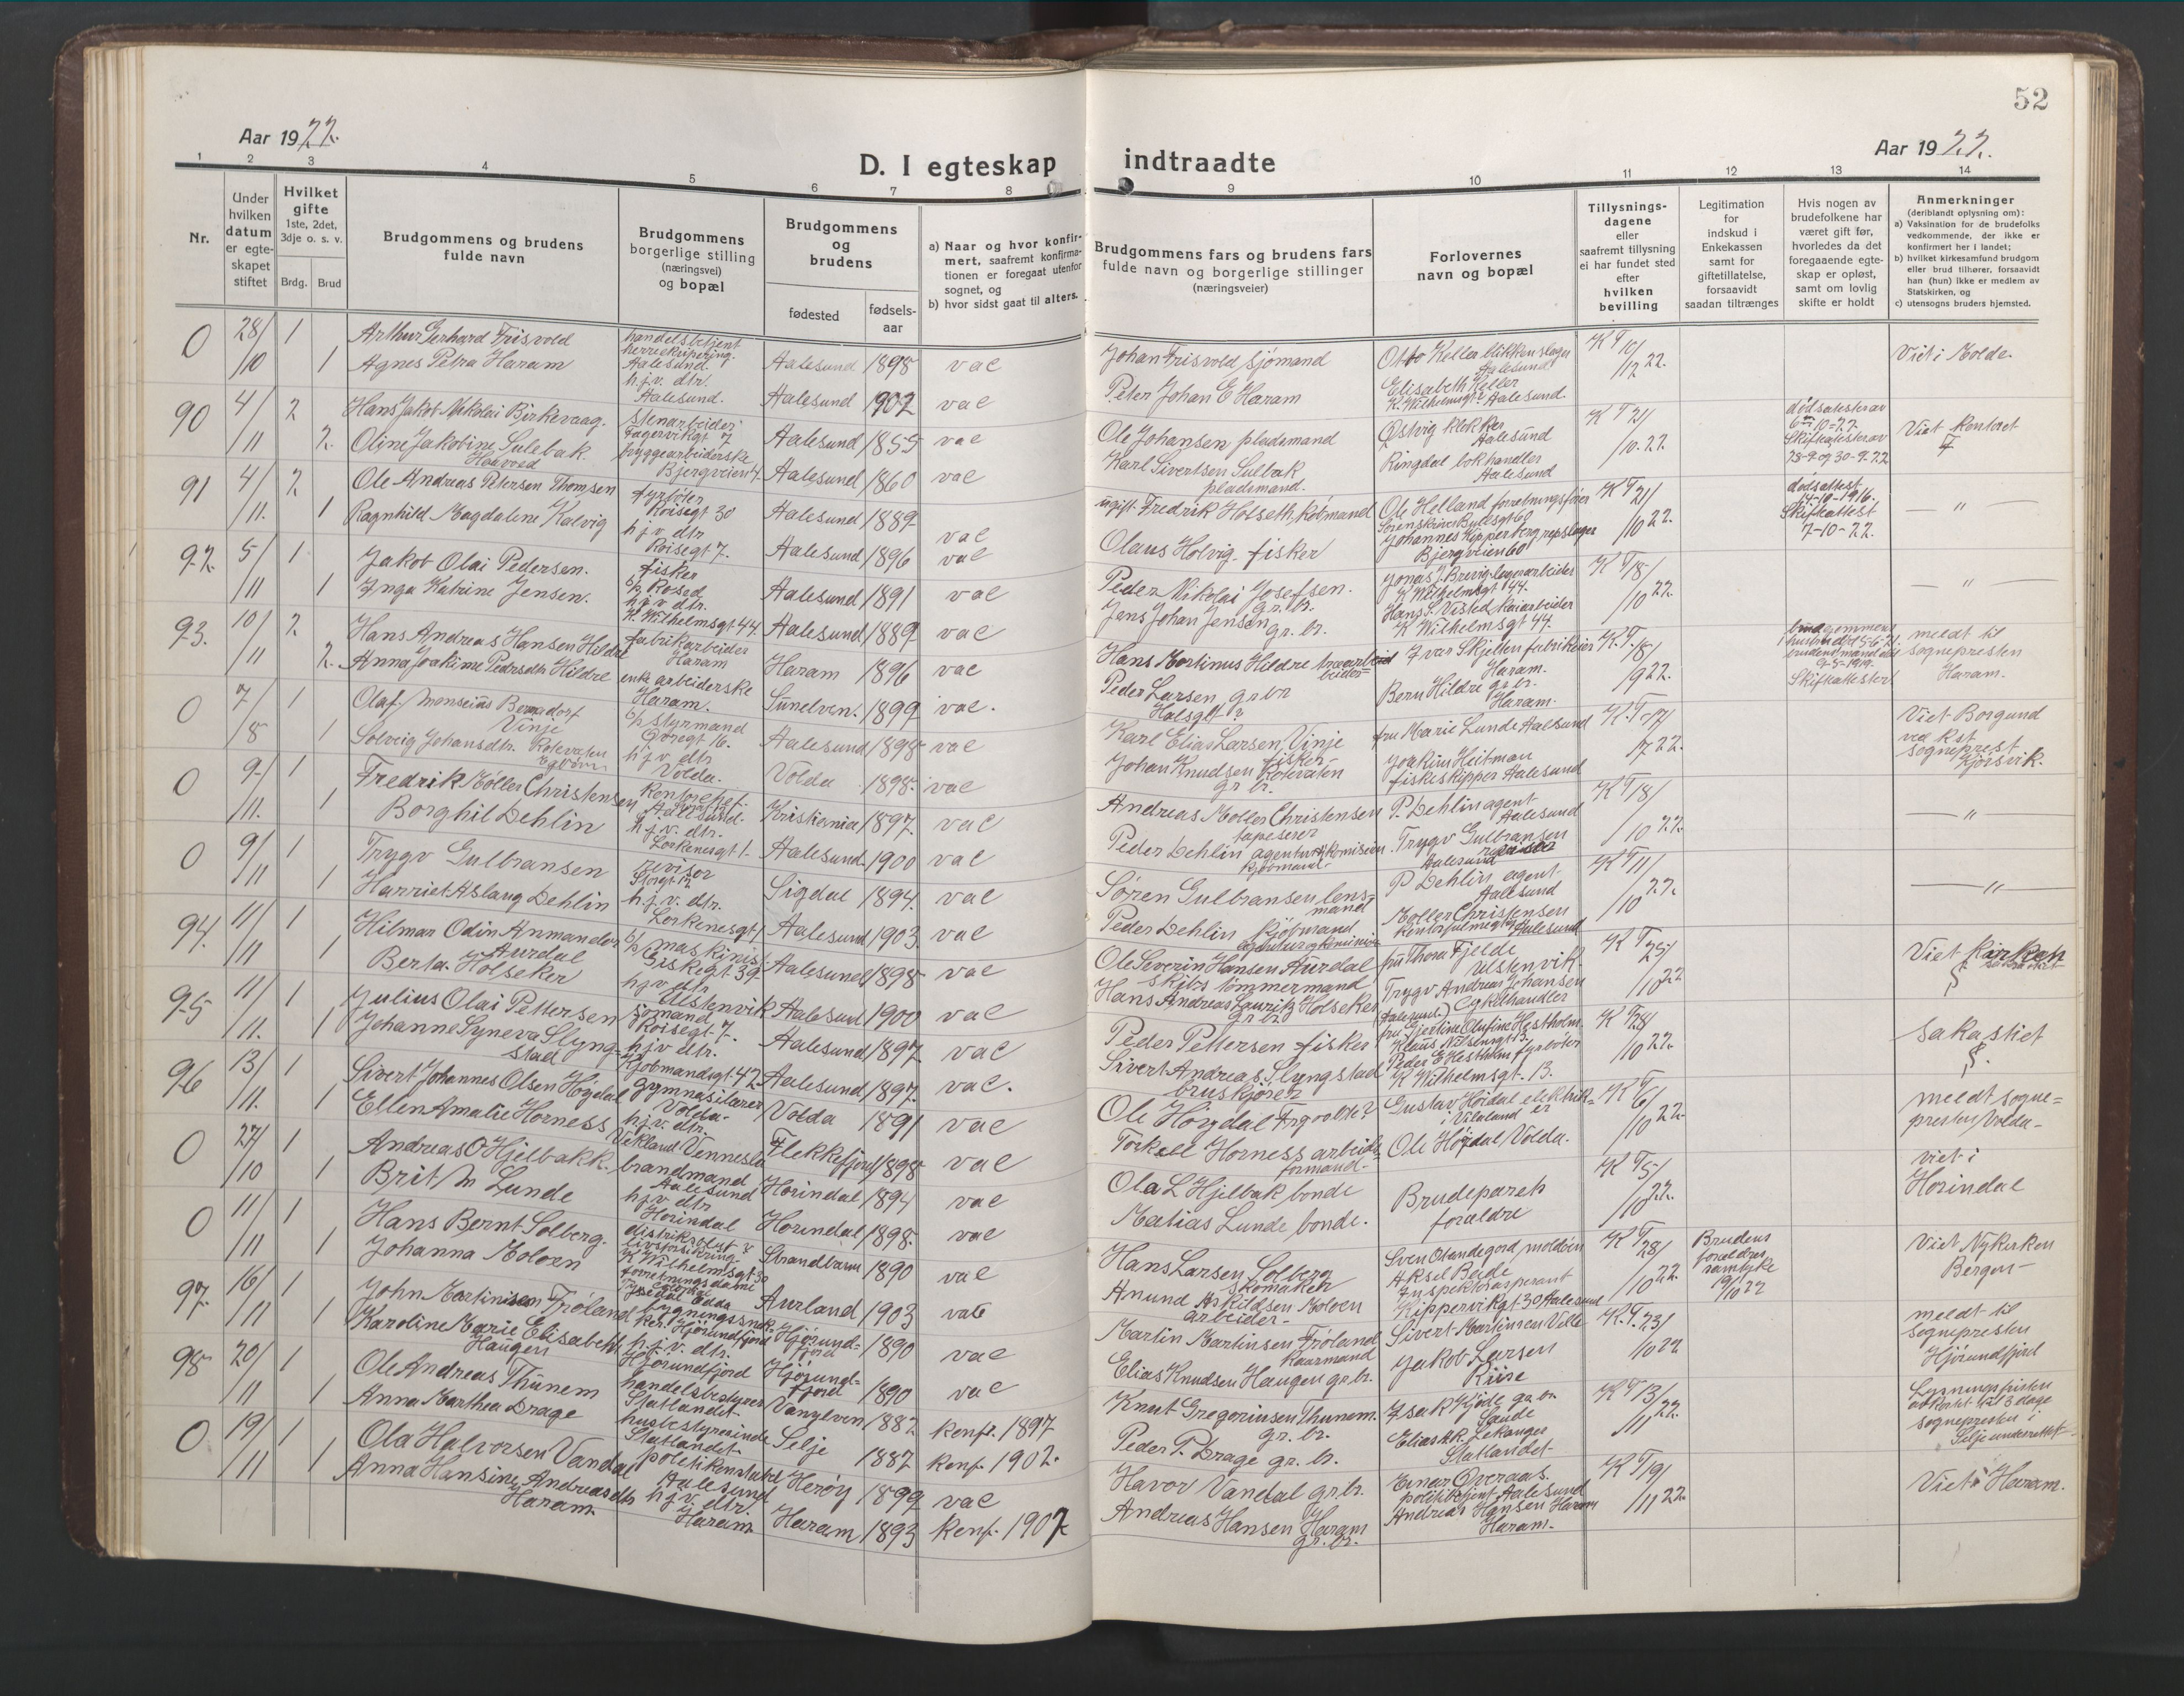 52
Aar 1922.
D. I egteskap indtraadte
Aar 1922.
1 2 3 4 5 6 7 8 9 10 11 12 13 14
Nr.
Under hvilken datum er egteskapet stiftet
Hvilket gifte 1ste, 2det, 3dje o. s. v.
Brdg. Brud
Brudgommens og brudens fulde navn
Brudgommens borgerlige stilling (næringsvei) og bopæl
Brudgommens og brudens
fødested
fødsels-aar
a) Naar og hvor konfirmert, saafremt konfirmationen er foregaat utenfor sognet, og
b) hvor sidst gaat til alters.
Brudgommens fars og brudens fars fulde navn og borgerlige stillinger (næringsveier)
Forlovernes navn og bopæl
Tillysningsdagene eller saafremt tillysning ei har fundet sted efter hvilken bevilling
Legitimation for indskud i Enkekassen samt for giftetillatelse, forsaavidt saadan tiltrænges
Hvis nogen av brudefolkene har været gift før, hvorledes da det foregaaende egteskap er opløst, samt om lovlig skifte er holdt
Anmerkninger (deriblandt oplysning om):
a) Vaksination for de brudefolks vedkommende, der ikke er konfirmert her i landet;
b) hvilket kirkesamfund brudgom eller brud tilhører, forsaavidt han (hun) ikke er medlem av Statskirken, og
c) utensogns bruders hjemsted.
0 28/10 1 Arthur Gerhard Frisvold handelsbetjent Aalesund Aalesund 1898 vac Johan Frisvold sjømand Otto Keller blikkenslager Aalesund Viet i Molde.
1 Agnes Petra Haram h.j.v. dtr. Aalesund. Aalesund 1902 vac Peter Johan E Haram Elisabeth Keller K. Wilhelmsgt Aalesund.
90 4/11 2 Hans Jakob Nikolai Birkevaag. stenarbeider Aalesund 1855 vac Ole Johansen pladsmand Østvig klokker Aalesund K T 21/10.22 Viet kontoret
2. Oline Jakobine Sulebak bryggearbeiderske Bjergveien 4. Aalesund 1860 vac Karl Sivertsen Sulbak pladsmand. Ringdal bokhandler Aalesund
91 4/11. 2 Ole Andreas Petersen Thomsen fyrbøter Roisegt 30 Aalesund 1889 vac Fredrik Holseth, kobmand Ole Helland forretningsfører K T 21/10 22. dødsattest 14-10-1916. Skifteattest 7-10-22. "
1 Ragnhild Magdalene Kalvig h j v dtr Roisegt 7. Aalesund 1896 vac Olaus Holvig fisker Bjergveien 60
92. 5/11 1 Jakob Olai Pedersen. fisker Aalesund 1891 vac Peder Nikolai Josefsen. gr. br. Jonas J. Brevig lagerarbeider K Wilhelmsgt 44. K T 18/10 22. "
1 Inga Katrine Jensen. h j v dtr. K. Wilhelmsgt 44. Aalesund 1889 vac Jens Johan Jensen gr. br. K Wilhelmsgt 44.
93. 10/11 2. Hans Andreas Hansen Hildre fabrikarbeider Haram Haram 1896 vac Hans Martinus Hildre Ivar Skjelten fabrikeier Haram. meldt til sognepresten Haram.
2. Anna Joakime Pedersdtr Hildre enke arbeiderske Haram. Sunelven. 1899 vac. Peder Larsen gr br Bern Hildre gr. br. Haram.
0 7/8 1 Olaf Monseius Vinje styrmand Aalesund 1898 vac Karl Elias Larsen Vinje fisker fru Marie Lunde Aalesund Viet Borgund ved sogneprest Kjørsvik.
1 Solveig Johansdtr. Rotevaten h j v dtr Volda. Volda 1898. vac Johan Knudsen Rotevaten gr br. Joakim Heitman fiskeskipper Aalesund
0 9/11. 1 Fredrik Møller Christensen Aalesund. Kristiania 1897. vac Andreas Møller Christensen tapeserer P. Dehlin agent Aalesund K T 18/10 22. "
1 Borghil Dehlin h.j.v. dtr. Lorkenesgt 1. Aalesund 1900 vac Peder Dehlin Trygv Gulbransen Aalesund
0 9/11 1 Trygv Gulbransen revisor Storgt 12 Sigdal 1894. vac Søren Gulbransen lensmand P Dehlin agent Aalesund K T 11/10 22. "
1 Harriet Aslaug Dehlin h.j.v. dtr. Lorkenesgt 1 Aalesund 1903. vac Peder Dehlin kjøbmand Møller Christensen Aalesund
94. 11/11 1 Hilmar Odin Anmander Aurdal maskinist Giskegt 39. Aalesund 1898 vac Ole Severin Hansen Aurdal skibstømmermand fru Thora Fjelde Ulstenvik. K T 25/10 22 Viet kirken
1 Berta Holseker h j v dtr Ulstenvik Aalesund 1900 vac Hans Andreas Laurits Holseker gr br Trygv Andreas Johansen Cykelhandler
95 11/11. 1 Julius Olai Pettersen sømand Roisegt. 7. Aalesund 1897. vac Peder Pettersen fisker K T 28/10 22. Sakastiet
1 Johanne Syneva Slyngstad h j v dtr. Kjøbmandsgt. 42. Aalesund 1897. vac. Sivert Andreas Slyngstad K Wilhelmsgt. 13.
96 13/11. 1 Sivert Johannes Olsen Høydal Gymnasilærer Volda. Volda 1891 vac Ole Høydal Gustav Høidal K T 6/10 22. meldt sognepresten Volda.
1 Ellen Amalie Horness h.j.v. dtr. Vikland Vennesla Flekkefjord 1898 vac Torkell Horness arbeidsformand. Ole Høydal Volda.
0 27/10 1 Andreas O Hjelbakk. brandmand Aalesund Horindal 1894 vac Ola L Hjelbak bonde Brudeparets forældre K T 5/10 22. viet i Horindal
1 Brit M Lunde h j v dtr Horindal Horindal 1898. vac Matias Lunde bonde.
0 11/11 1 Hans Bernt Solberg. K Wilhelmsgt 30 Strandbarm 1890 vac Hans Larsen Solberg skomaker K T 28/10 22. Brudens forældres samtyke 19/10 22 Viet Nykirken Bergen
1 Johanna Moloen Odda Aurland 1903 vac Anund Askildsen Moloen arbeider. Aksel Beide Kippervikgt 30 Aalesund
97. 16/11 1 John Martinisen Frøland Hjørundfjord 1890 vac Martin Martinsen Frøland Sivert Martinsen Ville K. T. 23/10 22 meldt til sognepresten Hjørundfjord
1 Karoline Marie Elisabeth Haugen h.j.v. dtr. Hjørundfjord Hjørundfjord 1890 vac Elias Knudsen Haugen gr. br. Jakob Larsen Riise
98 20/11 1 Ole Andreas Thunem handelsbestyrer Statlandet Vanylven 1882 konf. 1897 Knut Gregoriusen Thunem. gr. br. Isak Kjøde K T 13/11 22.
1 Anna Marthea Drage husbestyrerinde Statlandet Selje 1887 konf. 1902. Peder P. Drage gr. br. Statlandet
0 19/11 1 Ola Halvorsen Vandal politikonstabel Aalesund Herøy 1899 vac Havor Vandal gr. br. Einar Overaas. politibetjent Aalesund K T 19/11 22. Viet Haram.
1 Anna Hansine Andreasdtr Haram h j v. dtr. Haram Haram 1893 konf. 1907 Andreas Hansen Haram gr. br. Andreas Hansen Haram Haram.